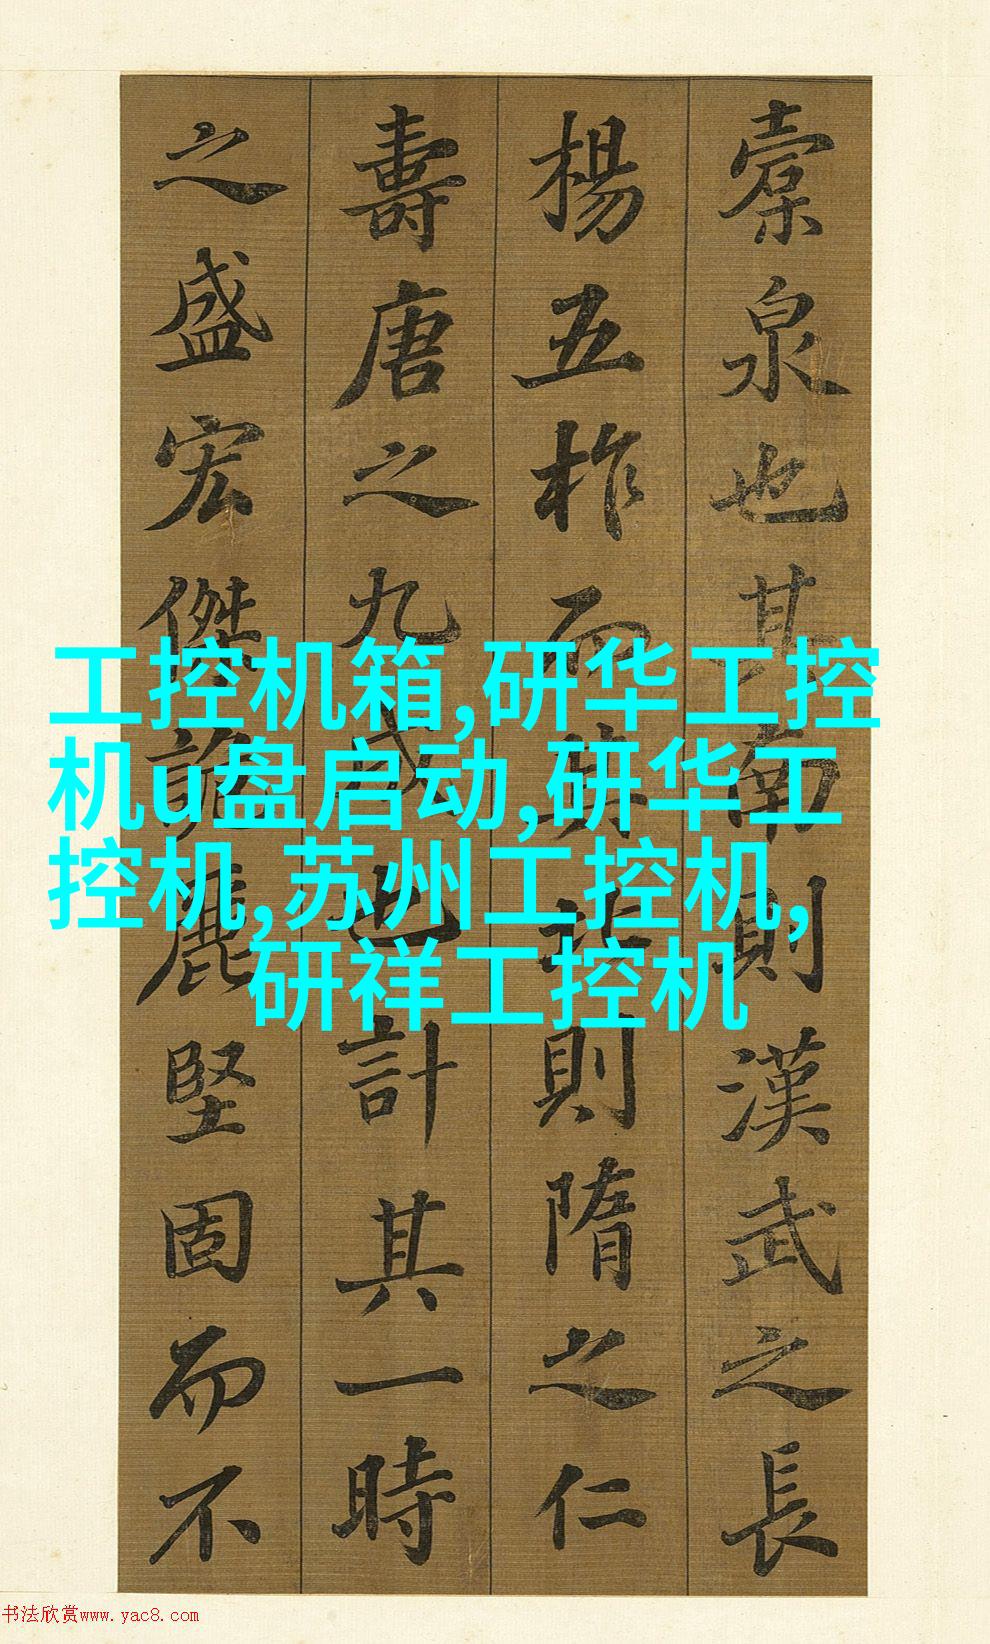 橐泉也其南則漢武之長
楊五柞而其北則隋之仁
壽唐之九成也計其一時
之盛宏傑詭麗堅固而不
工控机箱,研华工控
机u盘启动,研华工
控机,苏州工控机,
研祥工控机
书法欣赏www.yac8.com